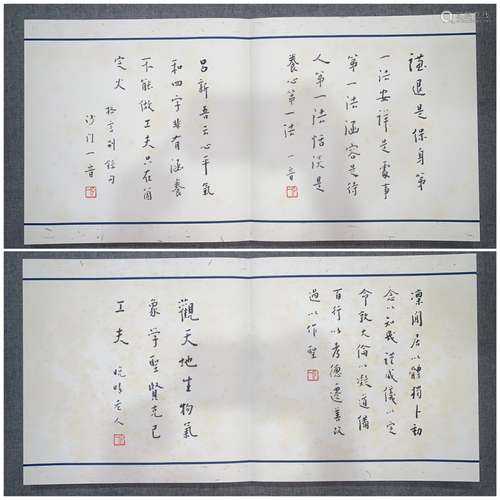 謙退是保身第
一法安祥是處事
第一法涵容是待
人第一法恬淡是
養心第一法 一音
呂新吾云心平氣
和四字非有涵養
不能做工夫只在箇
定火 格言別錄句
沙門一音
凜閒居以體獨卜動
念以知幾謹威儀以定
命敦大倫以凝道備
百行以考德遷善改
過以作聖
觀天地生物氣
象學聖賢克己
工夫 晚晴老人